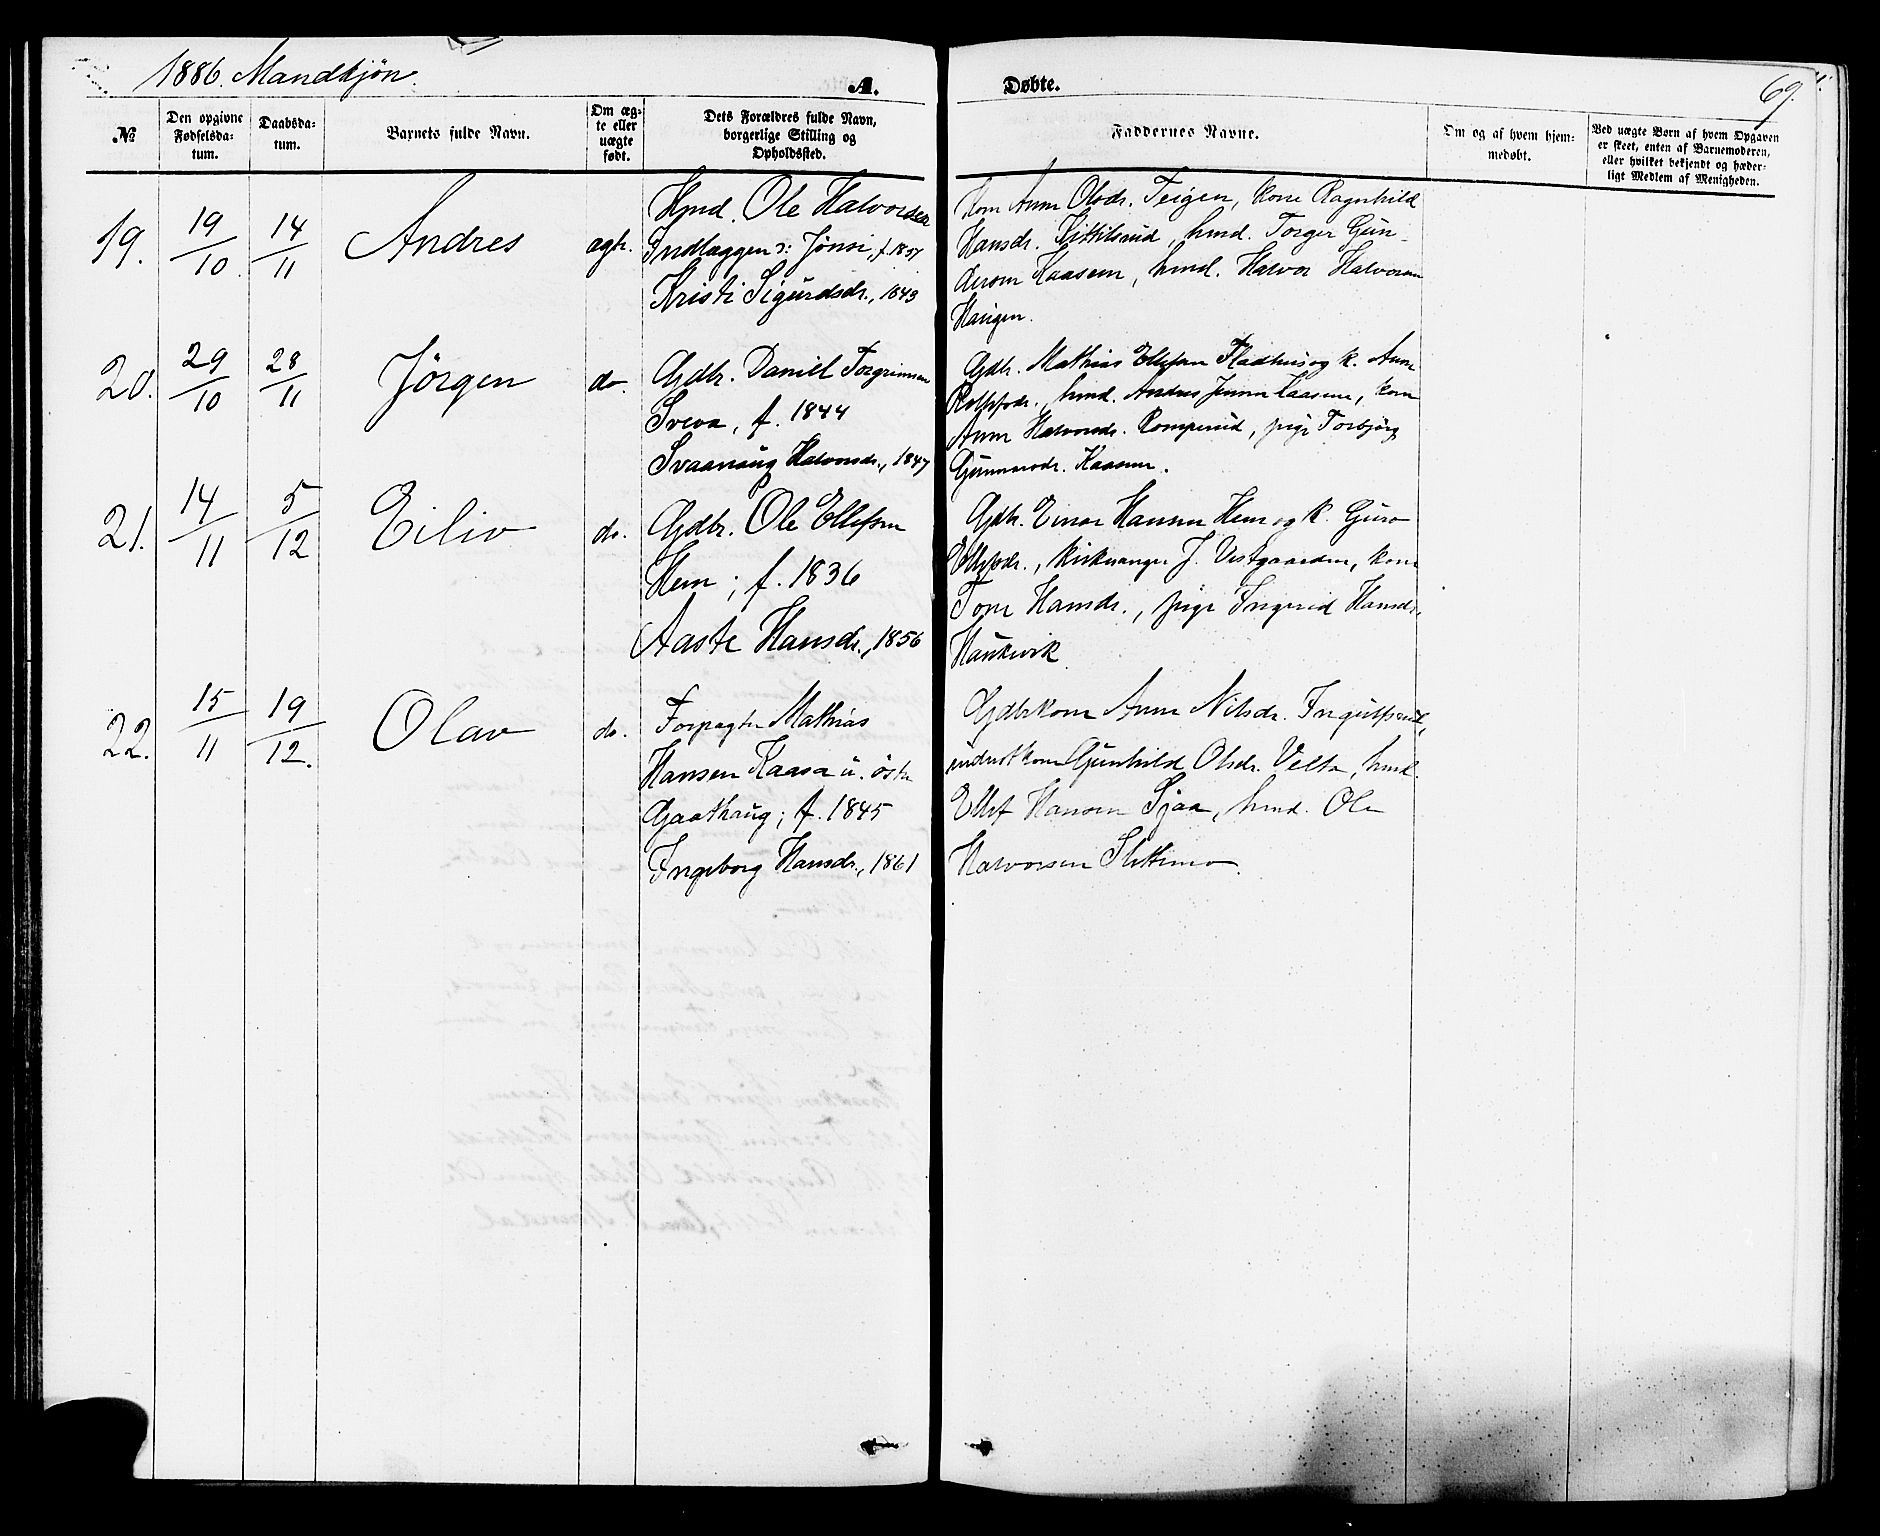 1886. Mandkjøn.
A.
Døbte.
69.
№
Den opgivne Fødselsda- tum.
Daabsda- tum.
Barnets fulde Navn.
Om æg- te eller uægte født.
Dets Forældres fulde Navn, borgerlige Stilling og Opholdssted.
Faddernes Navne.
Om og af hvem hjem- medøbt.
Ved uægte Børn af hvem Opgaven er skeet, enten af Barnemoderen, eller hvilket bekjendt og hæder- ligt Medlem af Menigheden.
19.
19/10
14/11
Andres
ægte.
Hmd. Ole Halvorsen
Indlæggen ɔ: Jønsi, f. 1857
Kristi Sigurdsdr., 1843
Kone Anne Olsdr. Teigen, kone Ragnhild
Hansdr. Kittilsrud, hmd. Torger Gun-
dersen Kaasene, hmd. Halvor Halvorsen
Haugen.
20.
29/10
28/11
Jörgen
do.
Gdbr. Daniel Torgrimsen
Sveva, f. 1844
Svaanaug Halvorsdr., 1847
Gdbr. Mathias Ellefsen Fladhus og k. Anne
hmd. Andres Jensen Kaasene, kone
Anne Halvorsdr. Romperud, pige Torbjörg
Gunnarsdr. Kaasene.
21.
14/11
5/12
Eiliv
do.
Gdbr. Ole Ellefsen
Hem; f. 1836
Aaste Hansdr., 1856
Gdbr. Einar Hansen Hem og k. Guro
Ellefsdr., kirkesanger J. Vestgaarden, kone
Tone Hansdr., pige Ingerid Hansdr.
Haukevik.
22.
15/11
19/12.
Olav
do.
Forpagter Mathias
Hansen Kaasa u. östre
Gaathaug; f. 1845
Ingeborg Hansdr., 1861
Gdbrkone Anne Nilsdr. Ingulfsrud,
inderstkone Gunhild Olsdr. Velta, hmd.
Ellef Hansen Sjaa, hmd. Ole
Halvorsen Slettemo.